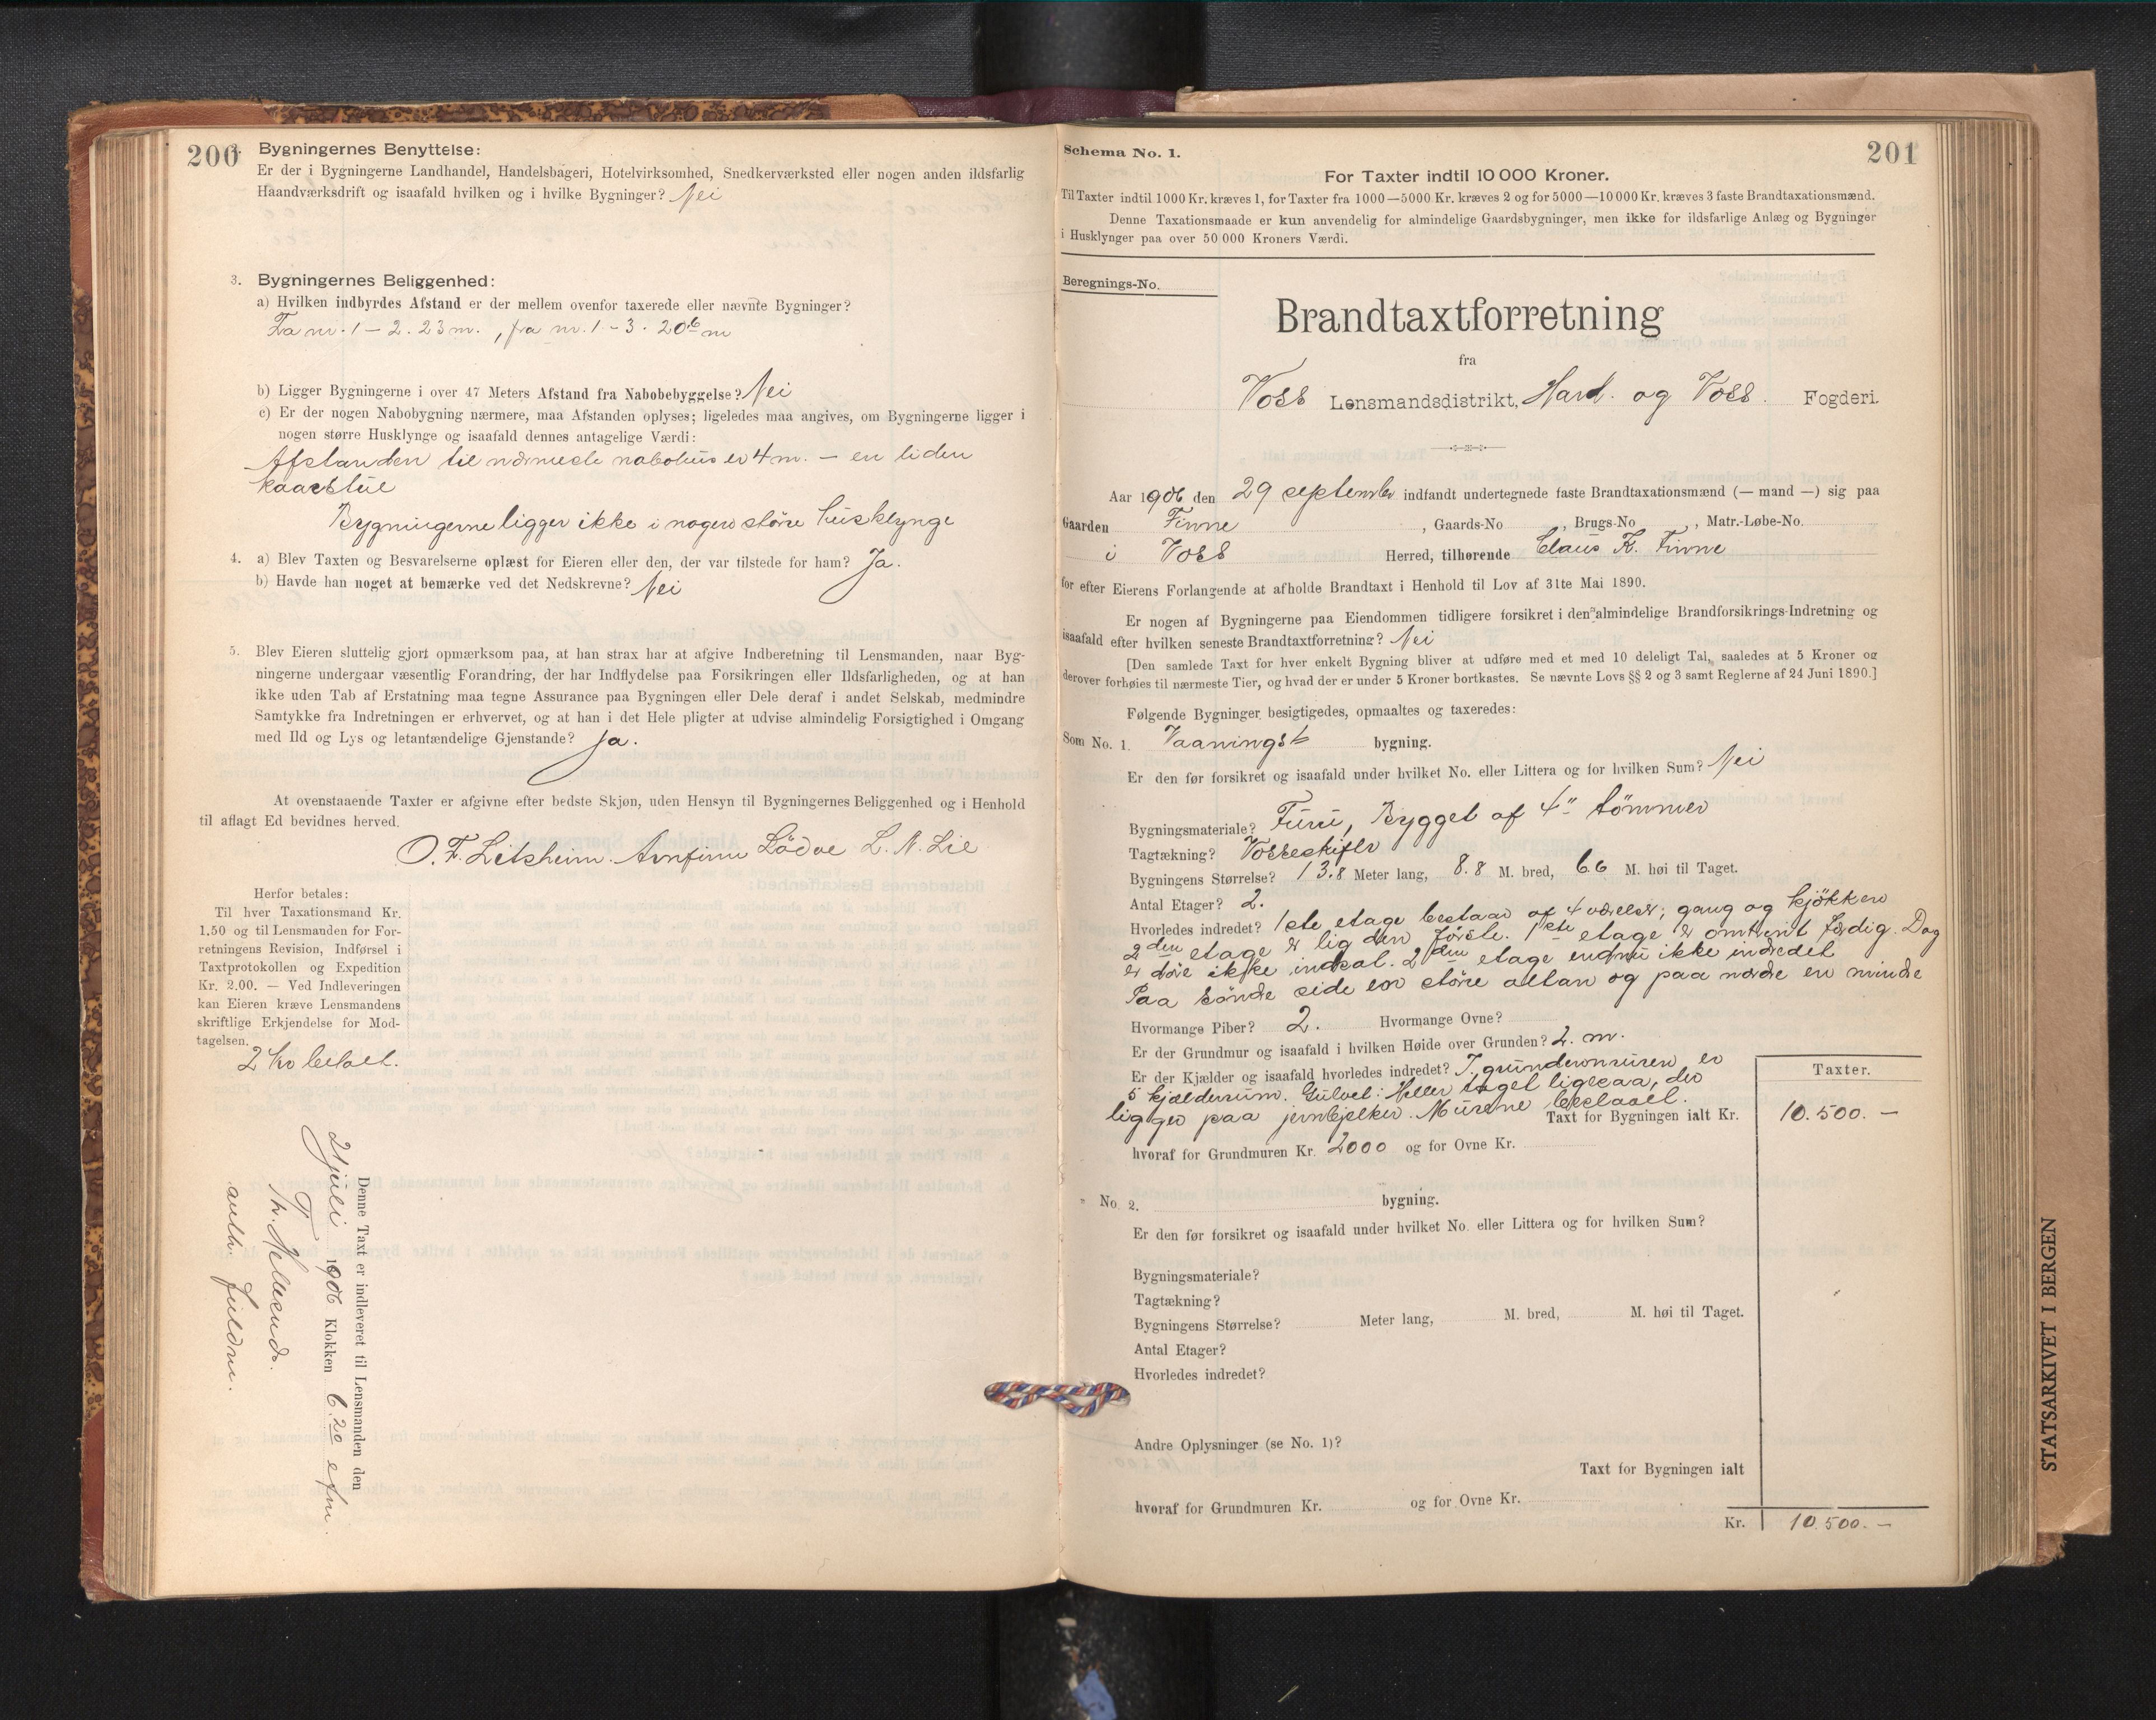 200
Bygningernes Benyttelse:
Er der i Bygningerne Landhandel, Handelsbageri, Hotelvirksomhed, Snedkerværksted eller nogen anden ildsfarlig
Haandværksdrift og isaafald hvilken og i hvilke Bygninger? Nei
3. Bygningernes Beliggenhed:
a) Hvilken indbyrdes Afstand er der mellem ovenfor taxerede eller nævnte Bygninger?
Fra nr. 1 – 2. 23 m., fra nr. 1 – 3. 20 m
b) Ligger Bygningerne i over 47 Meters Afstand fra Nabobebyggelse? Nei
c) Er der nogen Nabobygning nærmere, maa Afstanden oplyses; ligeledes maa angives, om Bygningerne ligger i
nogen større Husklynge og isaafald dennes antagelige Værdi:
Afstanden til nærmeste nabohus er 4 m. – en liden
kaarstue
Bygningerne ligger ikke i nogen större husklynge
4. a) Blev Taxten og Besvarelserne oplæst for Eieren eller den, der var tilstede for ham? Ja.
b) Havde han noget at bemærke ved det Nedskrevne? Nei
5. Blev Eieren sluttelig gjort opmærksom paa, at han strax har at afgive Indberetning til Lensmanden, naar Byg-
ningerne undergaar væsentlig Forandring, der har Indflydelse paa Forsikringen eller Ildsfarligheden, og at han
ikke uden Tab af Erstatning maa tegne Assurance paa Bygningen eller Dele deraf i andet Selskab, medmindre
Samtykke fra Indretningen er erhvervet, og at han i det Hele pligter at udvise almindelig Forsigtighed i Omgang
med Ild og Lys og letantændelige Gjenstande? Ja.
At ovenstaaende Taxter er afgivne efter bedste Skjøn, uden Hensyn til Bygningernes Beliggenhed og i Henhold
til aflagt Ed bevidnes herved.
O. F. Litsheim. Arnfinn Lödve L. N. Lie
Herfor betales:
Til hver Taxationsmand Kr.
1.50 og til Lensmanden for For-
retningens Revision, Indførsel i
Taxtprotokollen og Expedition
Kr. 2.00. — Ved Indleveringen
kan Eieren kræve Lensmandens
skriftlige Erkjendelse for Mod-
tagelsen.
2 Kr betalt.
Denne Taxt er indleveret til Lensmanden den
2 juli 1906 Klokken 6.20 efm.
Th. Hellesnes.
201
Schema No. 1.
For Taxter indtil 10 000 Kroner.
Til Taxter indtil 1000 Kr. kræves 1, for Taxter fra 1000—5000 Kr. kræves 2 og for 5000—10 000 Kr. kræves 3 faste Brandtaxationsmænd.
Denne Taxationsmaade er kun anvendelig for almindelige Gaardsbygninger, men ikke for ildsfarlige Anlæg og Bygninger
i Husklynger paa over 50 000 Kroners Værdi.
Beregnings-No.
Brandtaxtforretning
fra
Voss Lensmandsdistrikt, Hard. og Voss. Fogderi.
Aar 1906 den 29 september indfandt undertegnede faste Brandtaxationsmænd (— mand —) sig paa
Gaarden Finne, Gaards-No , Brugs-No , Matr.-Løbe-No.
i Voss Herred, tilhørende Claus K. Finne
for efter Eierens Forlangende at afholde Brandtaxt i Henhold til Lov af 31te Mai 1890.
Er nogen af Bygningerne paa Eiendommen tidligere forsikret i den almindelige Brandforsikrings-Indretning og
isaafald efter hvilken seneste Brandtaxtforretning? Nei
[Den samlede Taxt for hver enkelt Bygning bliver at udføre med et med 10 deleligt Tal, saaledes at 5 Kroner og
derover forhøies til nærmeste Tier, og hvad der er under 5 Kroner bortkastes. Se nævnte Lovs §§ 2 og 3 samt Reglerne af 24 Juni 1890.]
Følgende Bygninger besigtigedes, opmaaltes og taxeredes:
Som No. 1. Vaanings bygning.
Er den før forsikret og isaafald under hvilket No. eller Littera og for hvilken Sum? Nei
Bygningsmateriale? Furu, Bygget af 4" tömmer
Tagtækning? Vosseskifer
Bygningens Størrelse? 13.8 Meter lang, 8.8 M. bred, 6.6 M. høi til Taget.
Antal Etager? 2.
Hvorledes indredet? 1ste etage bestaar af 4 værelser; gang og kjökken
2den etage er lig den förste. 1ste etage er omtrent færdig. Dog
er döre ikke indsat. 2den etage endnu ikke indredet
Paa söndre side en större altan og paa nordre en mindre
Hvormange Piber? 2. Hvormange Ovne?
Er der Grundmur og isaafald i hvilken Høide over Grunden? 2. m.
Er der Kjælder og isaafald hvorledes indredet? I grundmuren er
5 kjælderrum. Gulvet: Heller taget ligesaa, der
ligger paa jernbjelker. Murene
Taxter.
Taxt for Bygningen ialt Kr. 10.500. –
hvoraf for Grundmuren Kr. 2000 og for Ovne Kr.
" No. 2. bygning.
Er den før forsikret og isaafald under hvilket No. eller Littera og for hvilken Sum?
Bygningsmateriale?
Tagtækning?
Bygningens Størrelse? Meter lang, M. bred, M. høi til Taget.
Antal Etager?
Hvorledes indredet?
Andre Oplysninger (se No. 1)?
Taxt for Bygningen ialt
hvoraf for Grundmuren Kr. og for Ovne Kr.
Kr. 10.500. –
STATSARKIVET I BERGEN